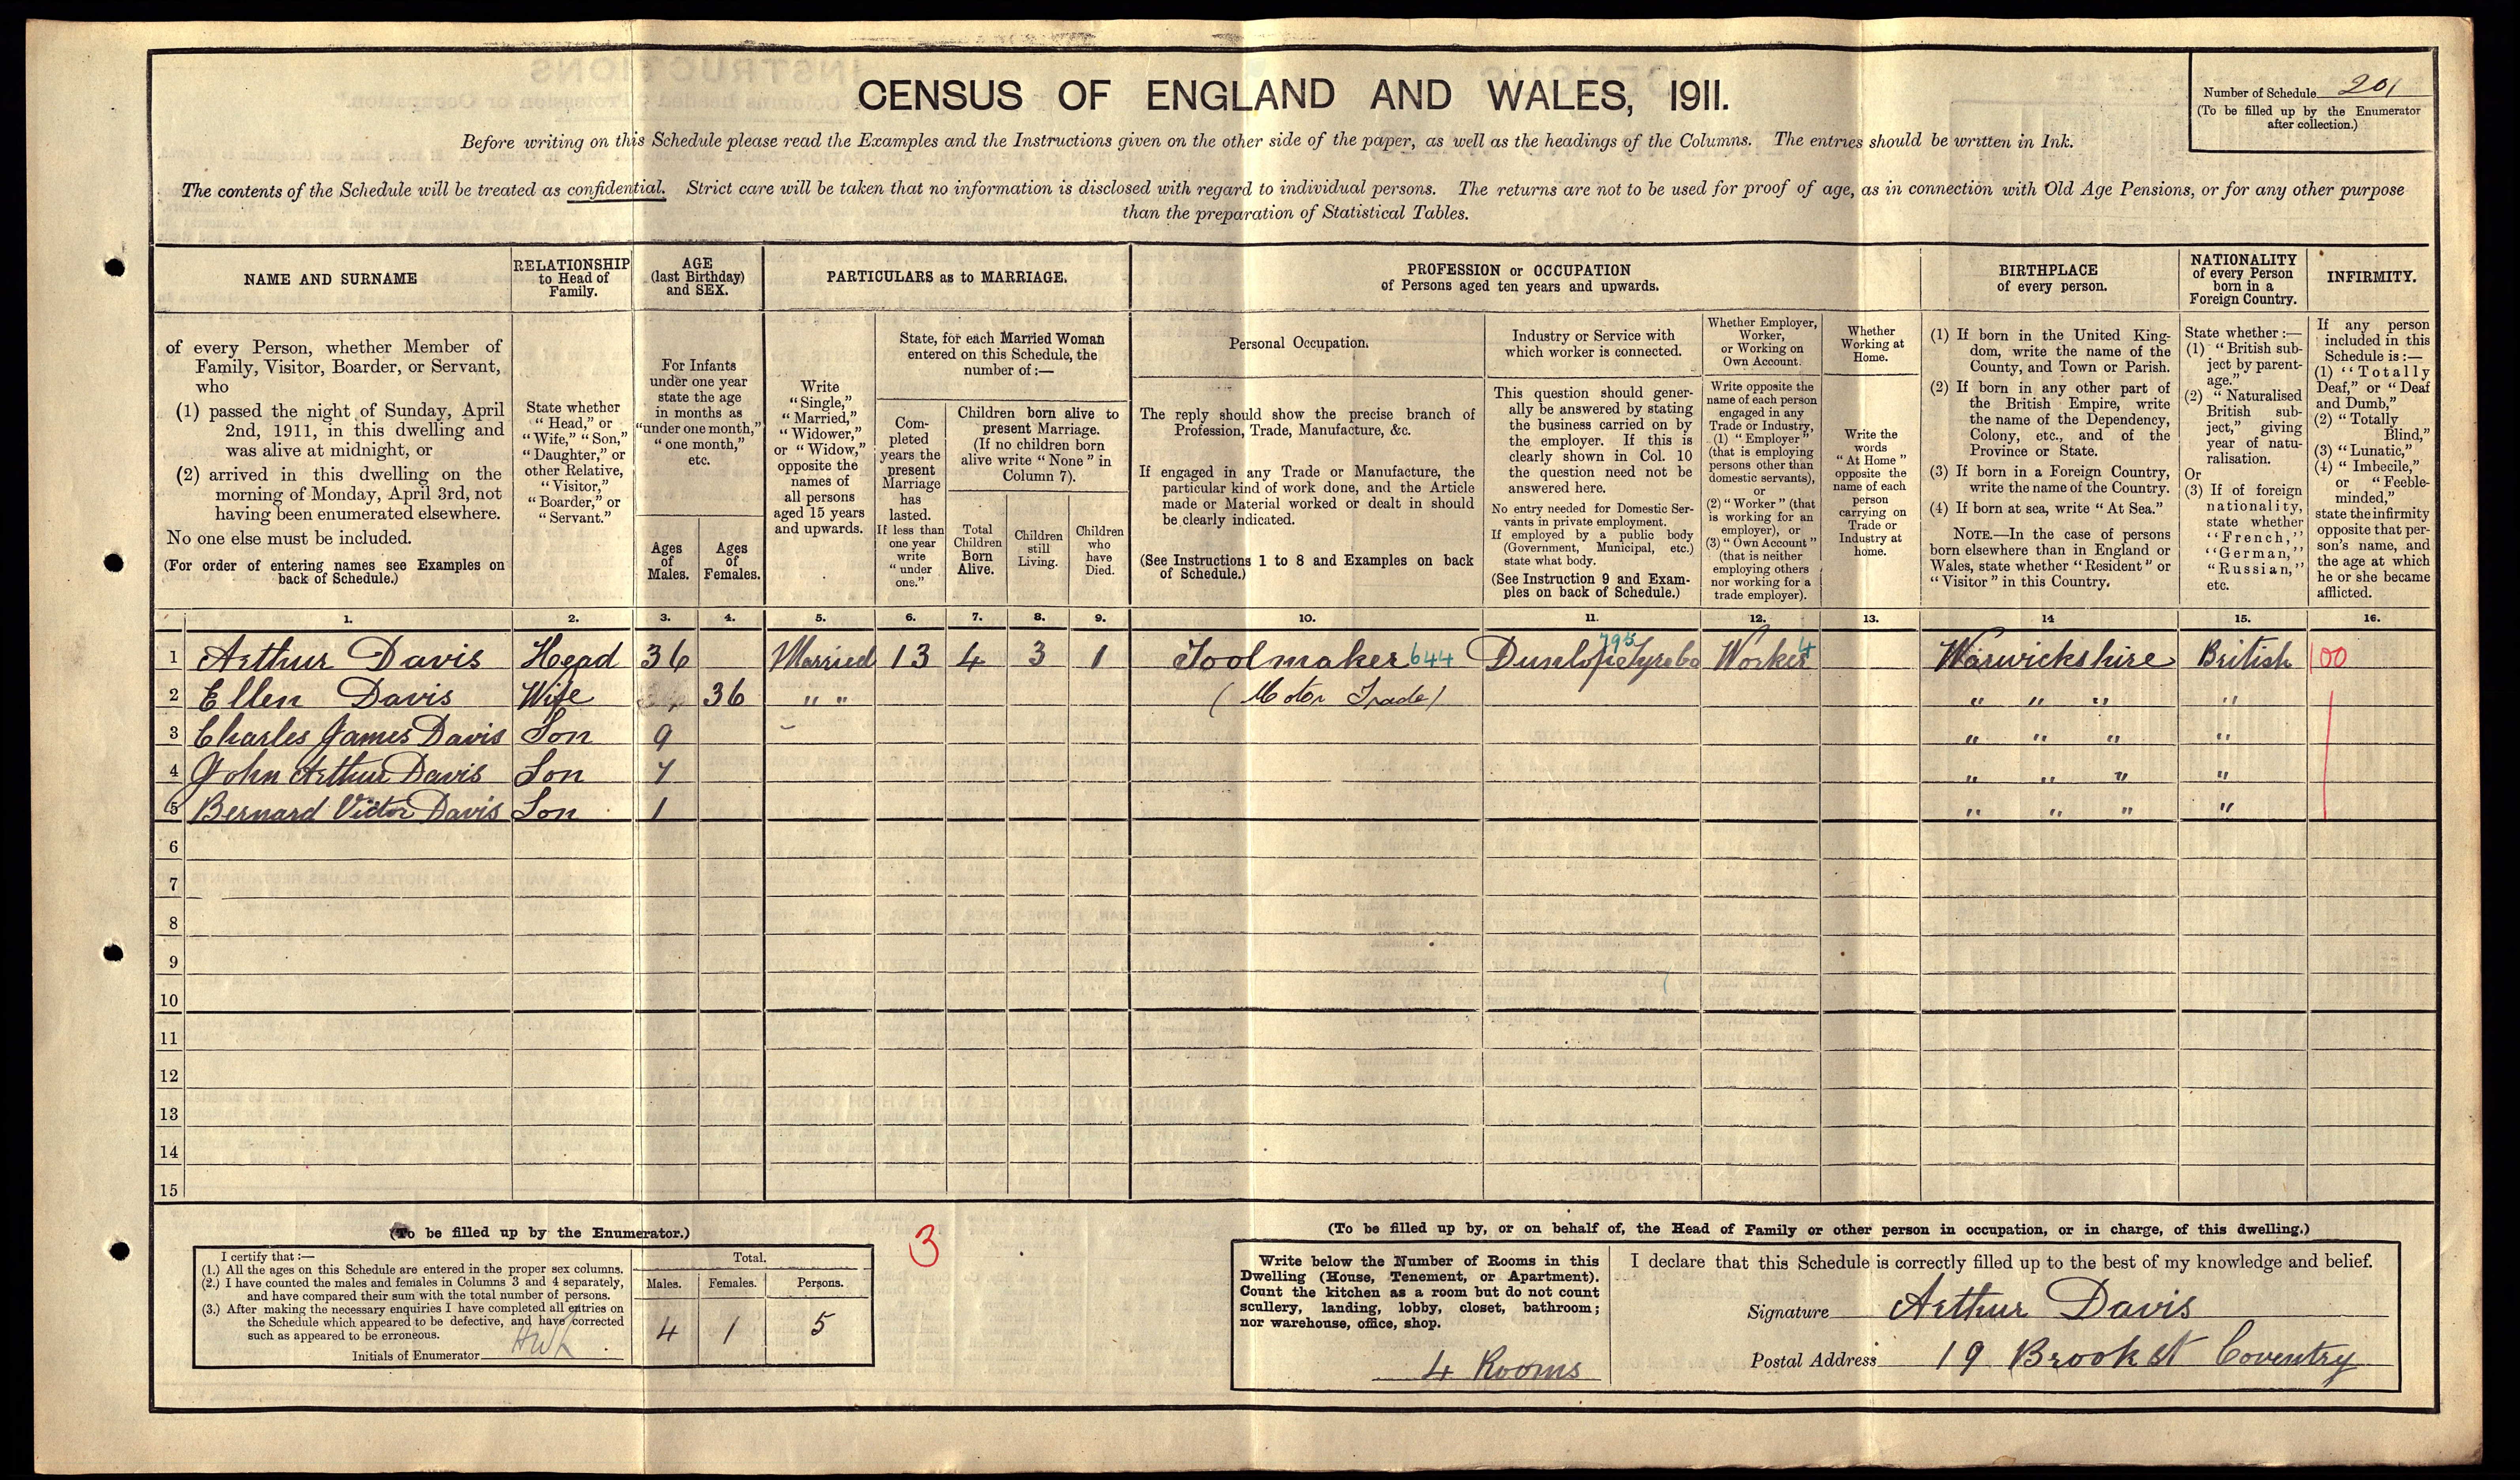 CENSUS OF ENGLAND AND WALES, 1911.
Number of Schedule 201
(To be filled up by the Enumerator
after collection.)
Before writing on this Schedule please read the Examples and the Instructions given on the other side of the paper, as well as the headings of the Columns. The entries should be written in Ink.
The contents of the Schedule will be treated as confidential. Strict care will be taken that no information is disclosed with regard to individual persons. The returns are not to be used for proof of age, as in connection with Old Age Pensions, or for any other purpose
than the preparation of Statistical Tables.
NAME AND SURNAME
of every Person, whether Member of
Family, Visitor, Boarder, or Servant,
who
(1) passed the night of Sunday, April
2nd, 1911, in this dwelling and
was alive at midnight, or
(2) arrived in this dwelling on the
morning of Monday, April 3rd, not
having been enumerated elsewhere.
No one else must be included.
(For order of entering names see Examples on
back of Schedule.)
RELATIONSHIP
to Head of
Family.
State whether
"Head," or
"Wife," "Son,"
"Daughter," or
other Relative,
"Visitor,"
"Boarder," or
"Servant."
AGE
(last Birthday)
and SEX.
For Infants
under one year
state the age
in months as
"under one month,"
"one month,"
etc.
Ages
of
Males.
Ages
of
Females.
PARTICULARS as to MARRIAGE.
Write
"Single,"
"Married,"
"Widower,"
or "Widow,"
opposite the
names of
all persons
aged 15 years
and upwards.
State, for each Married Woman
entered on this Schedule, the
number of:—
Com-
pleted
years the
present
Marriage
has
lasted.
If less than
one year
write
"under
one."
Children born alive to
present Marriage.
(If no children born
alive write "None" in
Column 7).
Total
Children
Born
Alive.
Children
still
Living.
Children
who
have
Died.
PROFESSION or OCCUPATION
of Persons aged ten years and upwards.
Personal Occupation.
The reply should show the precise branch of
Profession, Trade, Manufacture, &c.
If engaged in any Trade or Manufacture, the
particular kind of work done, and the Article
made or Material worked or dealt in should
be clearly indicated.
(See Instructions 1 to 8 and Examples on back
of Schedule.)
Industry or Service with
which worker is connected.
This question should gener-
ally be answered by stating
the business carried on by
the employer. If this is
clearly shown in Col. 10
the question need not be
answered here.
No entry needed for Domestic Ser-
vants in private employment.
If employed by a public body
(Government, Municipal, etc.)
state what body.
(See Instruction 9 and Exam-
ples on back of Schedule.)
Whether Employer,
Worker,
or Working on
Own Account.
Write opposite the
name of each person
engaged in any
Trade or Industry,
(1) "Employer"
(that is employing
persons other than
domestic servants),
or
(2) "Worker" (that
is working for an
employer), or
(3) "Own Account"
(that is neither
employing others
nor working for a
trade employer).
Whether
Working at
Home.
Write the
words
"At Home"
opposite the
name of each
person
carrying on
Trade or
Industry at
home.
BIRTHPLACE
of every person.
(1) If born in the United King-
dom, write the name of the
County, and Town or Parish.
(2) If born in any other part of
the British Empire, write
the name of the Dependency,
Colony, etc., and of the
Province or State.
(3) If born in a Foreign Country,
write the name of the Country.
(4) If born at sea, write "At Sea."
NOTE.—In the case of persons
born elsewhere than in England or
Wales, state whether "Resident" or
"Visitor" in this Country.
NATIONALITY
of every Person
born in a
Foreign Country.
State whether:—
(1) "British sub-
ject by parent-
age."
(2) "Naturalised
British sub-
ject," giving
year of natu-
ralisation.
Or
(3) If of foreign
nationality,
state whether
"French,"
"German,"
"Russian,"
etc.
INFIRMITY.
If any person
included in this
Schedule is:—
(1) "Totally
Deaf," or "Deaf
and Dumb,"
(2) "Totally
Blind,"
(3) "Lunatic,"
(4) "Imbecile,"
or "Feeble-
minded,"
state the infirmity
opposite that per-
son's name, and
the age at which
he or she became
afflicted.
1. 2. 3. 4. 5. 6. 7. 8. 9. 10. 11. 12. 13. 14 15. 16.
1 Arthur Davis Head 36 Married 13 4 3 1 Toolmaker 644 Dunlop Tyre Co 795 Worker 4 Warwickshire British 100
2 Ellen Davis Wife 36 " " (Motor Trade) " " " "
3 Charles James Davis Son 9 - " " " "
4 John Arthur Davis Son 7 " " " "
5 Bernard Victor Davis Son 1 " " " "
6
7
8
9
10
11
12
13
14
15
(To be filled up by the Enumerator.)
I certify that:—
(1.) All the ages on this Schedule are entered in the proper sex columns.
(2.) I have counted the males and females in Columns 3 and 4 separately,
and have compared their sum with the total number of persons.
(3.) After making the necessary enquiries I have completed all entries on
the Schedule which appeared to be defective, and have corrected
such as appeared to be erroneous.
Initials of Enumerator
Total.
Males. Females. Persons.
4 1 5
3
(To be filled up by, or on behalf of, the Head of Family or other person in occupation, or in charge, of this dwelling.)
Write below the Number of Rooms in this
Dwelling (House, Tenement, or Apartment).
Count the kitchen as a room but do not count
scullery, landing, lobby, closet, bathroom;
nor warehouse, office, shop.
4 Rooms
I declare that this Schedule is correctly filled up to the best of my knowledge and belief.
Signature Arthur Davis
Postal Address 19 Brook st Coventry